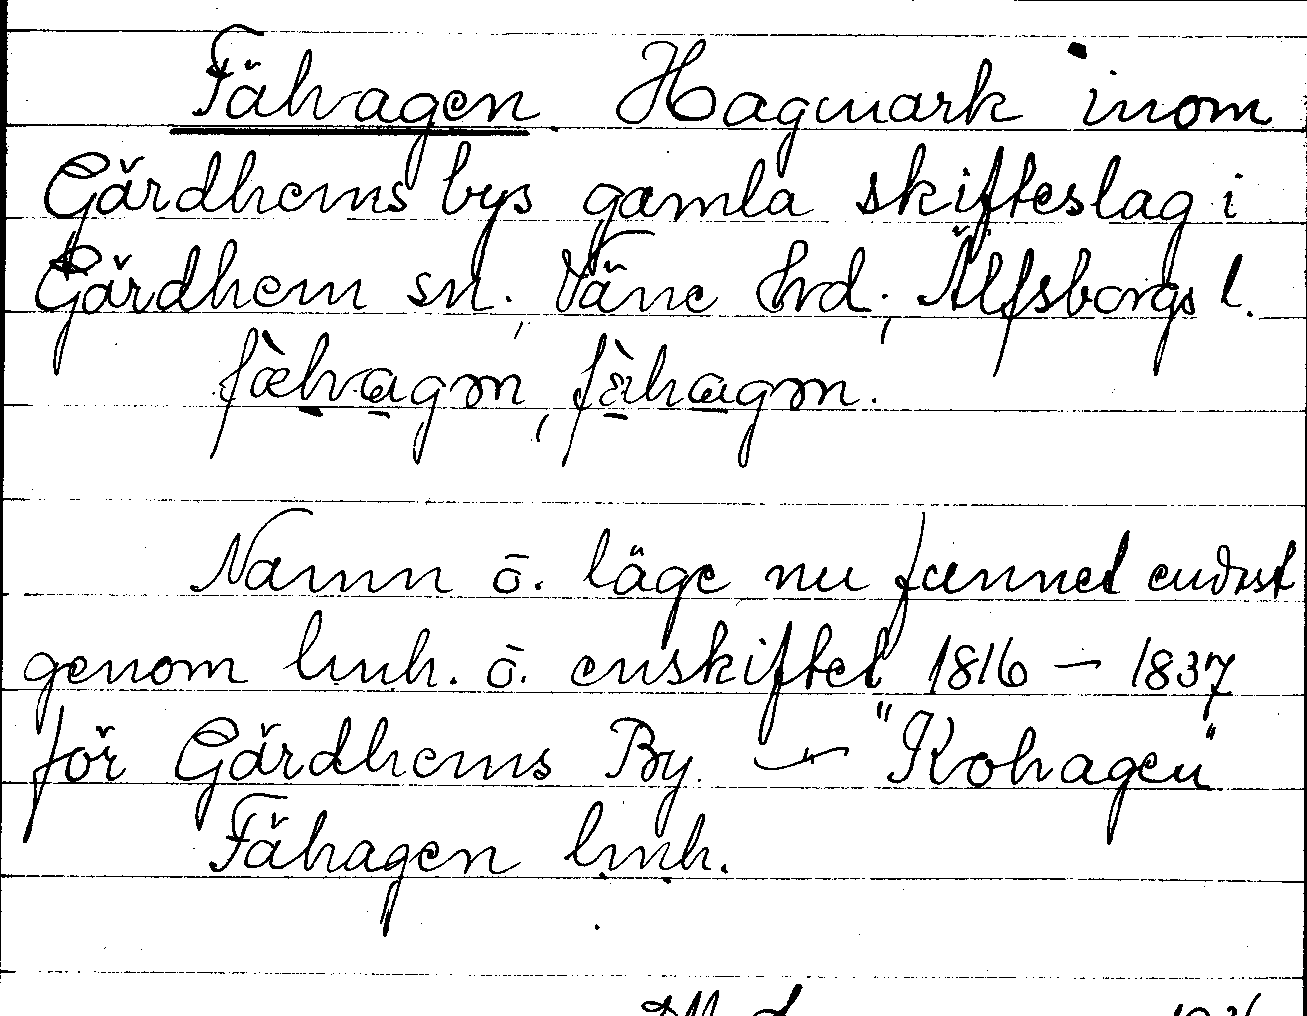 Fähagen. Hagmark inom
Gärdhems bys gamla skifteslag i
Gärdhem sn., Väne hrd., Älfsborgs l.
fæ̀hagm, fä̀hagm.
Namn o. läge nu funnet endast
genom lmh. o. enskiftet 1816 — 1837
för Gärdhems By. — "Kohagen"
Fähagen lmh.